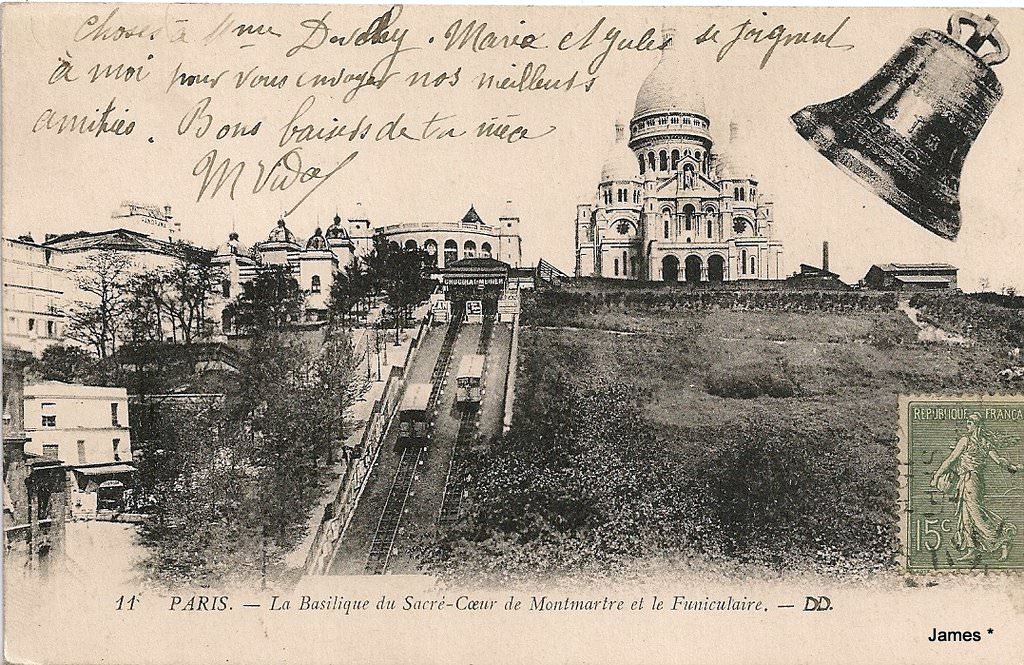 Choses à Mme Duchy. Marie et Jules se joignent
à moi pour vous envoyer nos meilleurs
amitiés. Bons baisers de ta nièce
M Vidal
CHOCOLAT-MENIER
REPUBLIQUE FRANCA
15c
11 PARIS. — La Basilique du Sacré-Cœur de Montmartre et le Funiculaire. — DD.
James *